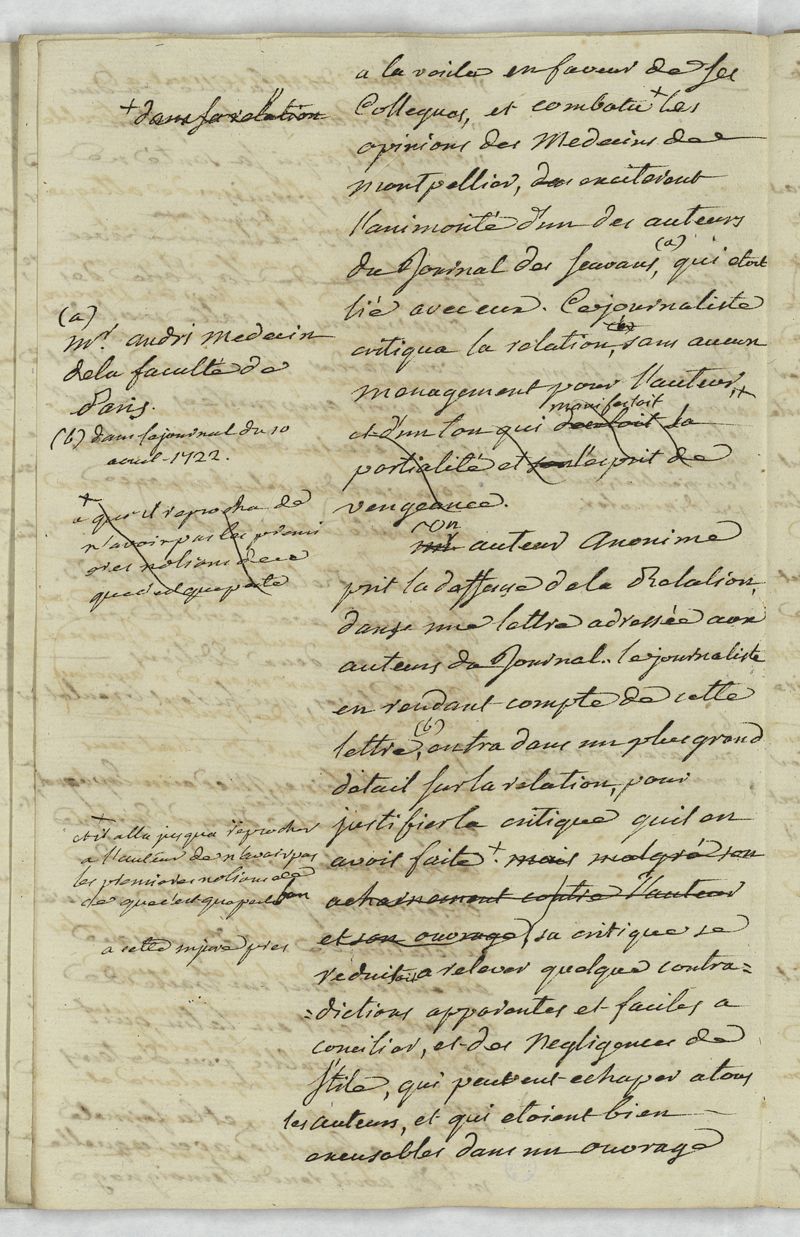 a la voile en faveur de ses
+ dans sa relation
Collegues, et combatu + les
opinions des Medecins de
Montpellier, exciterent
l'animosité d'un des auteurs
du Journal des scavans, (a) qui etoit
lié avec eux. Ce journaliste
critiqua la relation, (b) sans aucun
menagement pour l'auteur,
manifestoit
et d'un ton qui deceloit sa
partialité et son l'esprit de
vengeance.
(a)
mr. andri medecin
de la faculté de
Paris.
(b) dans le journal du 10
avril 1722.
+
a qui il reprocha de
n'avoir pas les premi
eres notions de ce
que c'est que peste
un
mr auteur Anonime
prit la deffense de la Relation,
dans une lettre adressée aux
auteurs du Journal. le journaliste
en rendant compte de cette
lettre, (b) entra dans un plus grand
detail sur la relation, pour
justifier la critique qu'il en
avoit faite +. mais malgré son
acharnement contre l'auteur
et son ouvrage, sa critique se
reduisoit a relever quelque contra=
=dictions apparentes et faciles a
concilier, et des Negligences de
stile, qui peuvent echaper a tous
les auteurs, et qui etoient bien
excusables dans un ouvrage
+
et il alla jusqu'a reprocher
a l'auteur de n'avoir pas
les premieres notions
de que c'est que peste
a cette injure pres